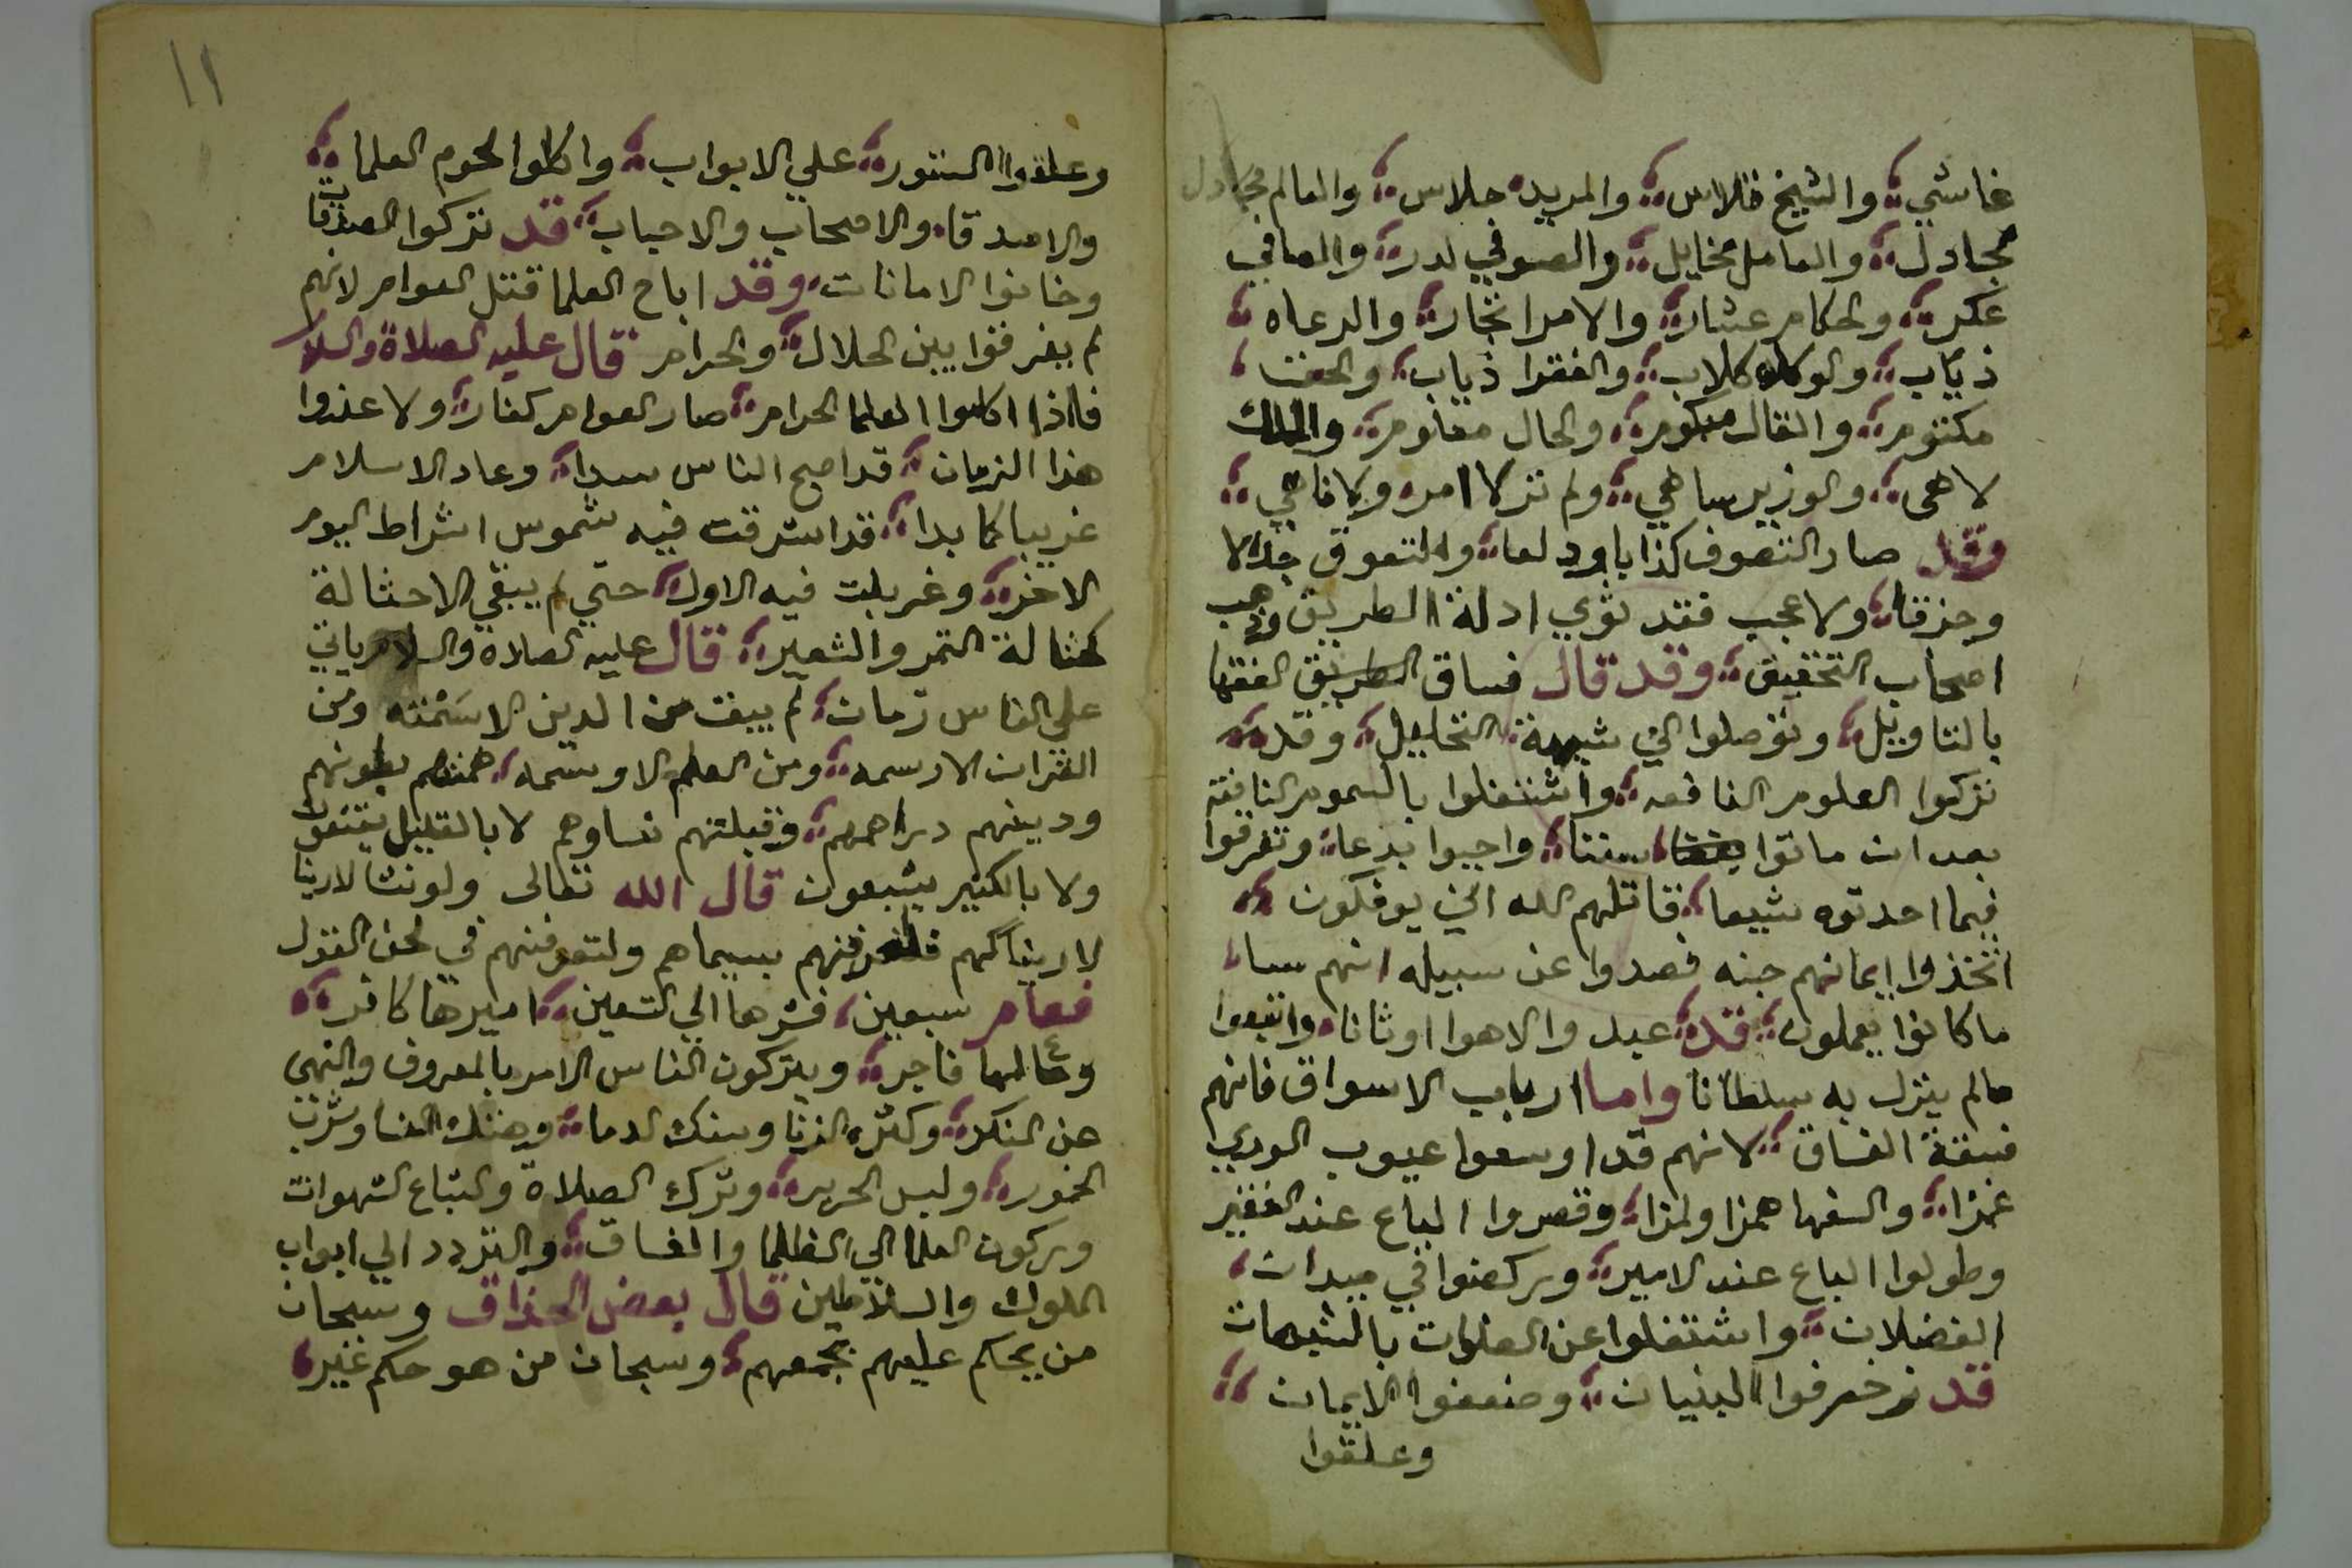 غاشي والشيخ فلاس والمريد جلاس والعالم مجادل
مجادل والعامل مخايل والصوفي لدر والصافي
عكر والحكام عشار والامرا تجار والرعاه
ذياب والوكلا كلاب والفقرا ذباب والحق
مكتوم والقال مبكوم والحال معلوم والملك
لاهى والوزير ساهي ولم تر لا امره ولا ناهي
وقد صار التصوف كذبا وولعا والتعوق جدالا
وحذقا ولا عجب فقد ثوي ادلة الطريق وذهب
اصحاب التحقيق وقد قال فساق الطريق الفقها
بالتاويل وتوصلوا الي شبهة التحليل وقد
تركوا العلوم النافعه واشتغلوا بالسموم الناقعة
بعد ان ماتوا سننا واحيوا بدعا وتفرقوا
فيما احدثوه شيعا فقاتلهم الله اني يوفكون
اتخذوا ايمانهم جنه فصدوا عن سبيله انهم سا
ما كانوا يعملون قد عبدوا الاهوا اوثانا واتبعوا
مالم ينزل به سلطانا واما ارباب الاسواق فانهم
فسقة الفساق لانهم قد اوسعوا عيوب الوري
غمزا والسفها همزا ولمزا وقصروا الباع عند الفقير
وطولوا الباع عند الامير وركضوا في ميدان
الفضلات واشتغلوا عن الصلوات بالشبهات
قد زخرفوا البنيان وضعفوا الايمان
وعلقوا
١١
وعلقوا الستور علي الابواب واكلوا لحوم العلما
والاصدقا والاصحاب والاحباب قد تركوا الصدقات
وخانوا الامانات وقد اباح العلما قتل العوام لانهم
لم يفرقوا بين الحلال والحرام قال عليه الصلاة والسلا
فاذا اكلوا العلما الحرام صار العوام كفار ولا عذوا
هذا الزمان قد اصبح الناس سدا وعاد الاسلام
غريبا كما بدا قد اشرقت فيه شموس اشراط اليوم
الاخر وغربلت فيه الاول حتي لم يبقي الا حثالة
كحثالة التمر والشعير قال عليه الصلاة والسلام ياتي
علي الناس زمان لم يبقي من الدين الا سمته ومن
القران الا رسمه ومن العلم الا وسمه همتهم بطونهم
ودينهم دراهمهم وقبلتهم نساوهم لا بالقليل يقنعون
ولا بالكثير يشبعون قال الله تعالى ولو نشا لارينا
لاريناكهم فلعرفتهم بسيماهم ولتعرفنهم في لحن القول
فعام سبعين فشرها الي التسعين اميرها كافر
وعالمها فاجر ويتركون الناس الامر بالمعروف والنهي
عن المنكر وكثره الزنا وسفك الدما وهتك النسا وشرب
الخمور ولبس الحرير وترك الصلاة واتباع الشهوات
وركون العلما الي الظلما والفساق والتردد الي ابواب
الملوك والسلاطين قال بعض الحذاق وسبحان
من يحكم عليهم بجمعهم وسبحان من هو حكم غير